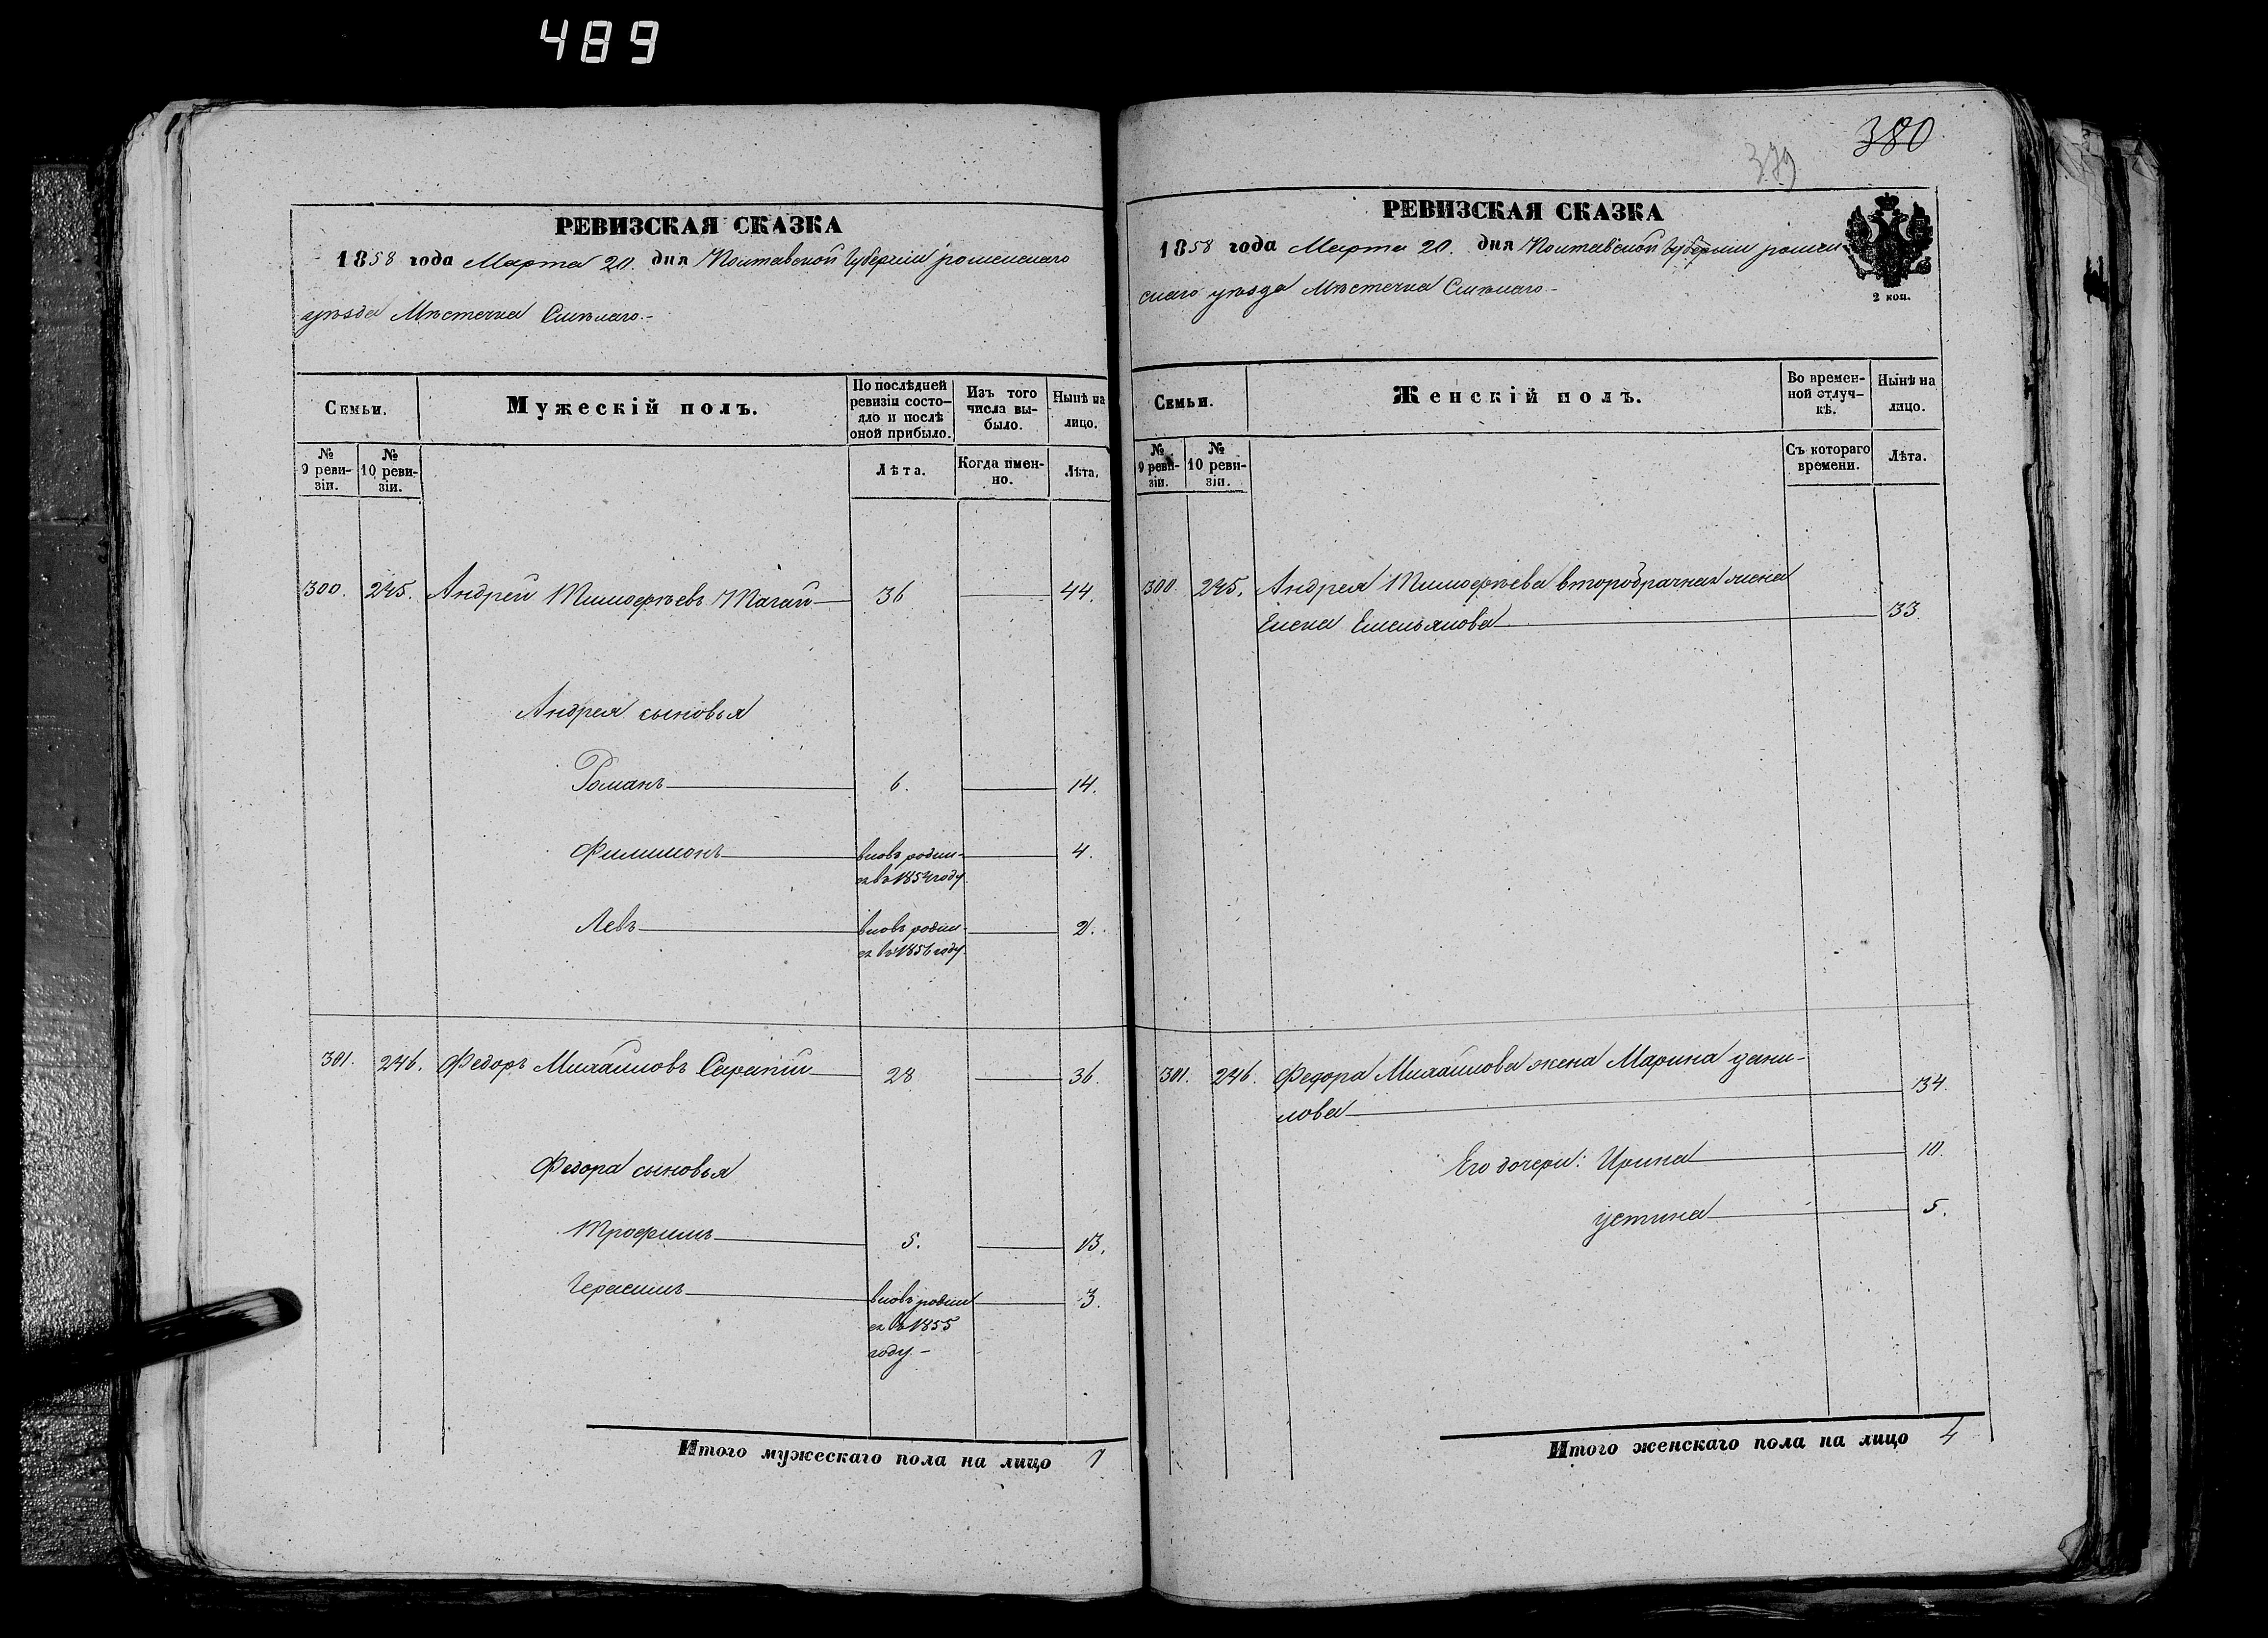 489
380
379
РЕВИЗСКАЯ СКАЗКА
1858 года Марта 20. дня Полтавской Губерніи роменскаго
уѣзда Мѣстечка Смѣлаго.-
Семьи.
Мужескій полъ.
По послѣдней ревизіи состояло и послѣ оной прибыло.
Изъ того числа выбыло.
Нынѣ на лицо.
№ 9 ревизіи.
№ 10 ревизіи.
Лѣта.
Когда именно.
Лѣта.
300. 245. Андрей Тимофѣевъ Магай 36 44.
Андрея сыновья
Романъ 6. 14.
Филимонъ вновь родил- 4.
ся въ 1854 году
Левъ вновь родил- 2.
ся въ 1856 году
301. 246. Федоръ Михайловъ Сарапій 28 36.
Федора сыновья
Трофимъ 5. 13.
Герасимъ вновь родил 3.
ся въ 1855
году.-
Итого мужескаго пола на лицо
РЕВИЗСКАЯ СКАЗКА
1858 года Марта 20. дня Полтавской Губерніи ромен
скаго уѣзда Мѣстечка Смѣлаго.-
2 коп.
Семьи.
Женскій полъ.
Во временной отлучкѣ.
Нынѣ на лицо.
№ 9 ревизіи.
№ 10 ревизіи.
Съ котораго времени.
Лѣта.
300. 245. Андрея Тимофѣева второбрачная жена
Елена Емельянова 33.
301. 246. Федора Михайлова жена Марина дани-
лова 34.
Его дочери: Ирина 10.
устина 5.
Итого женскаго пола на лицо 4